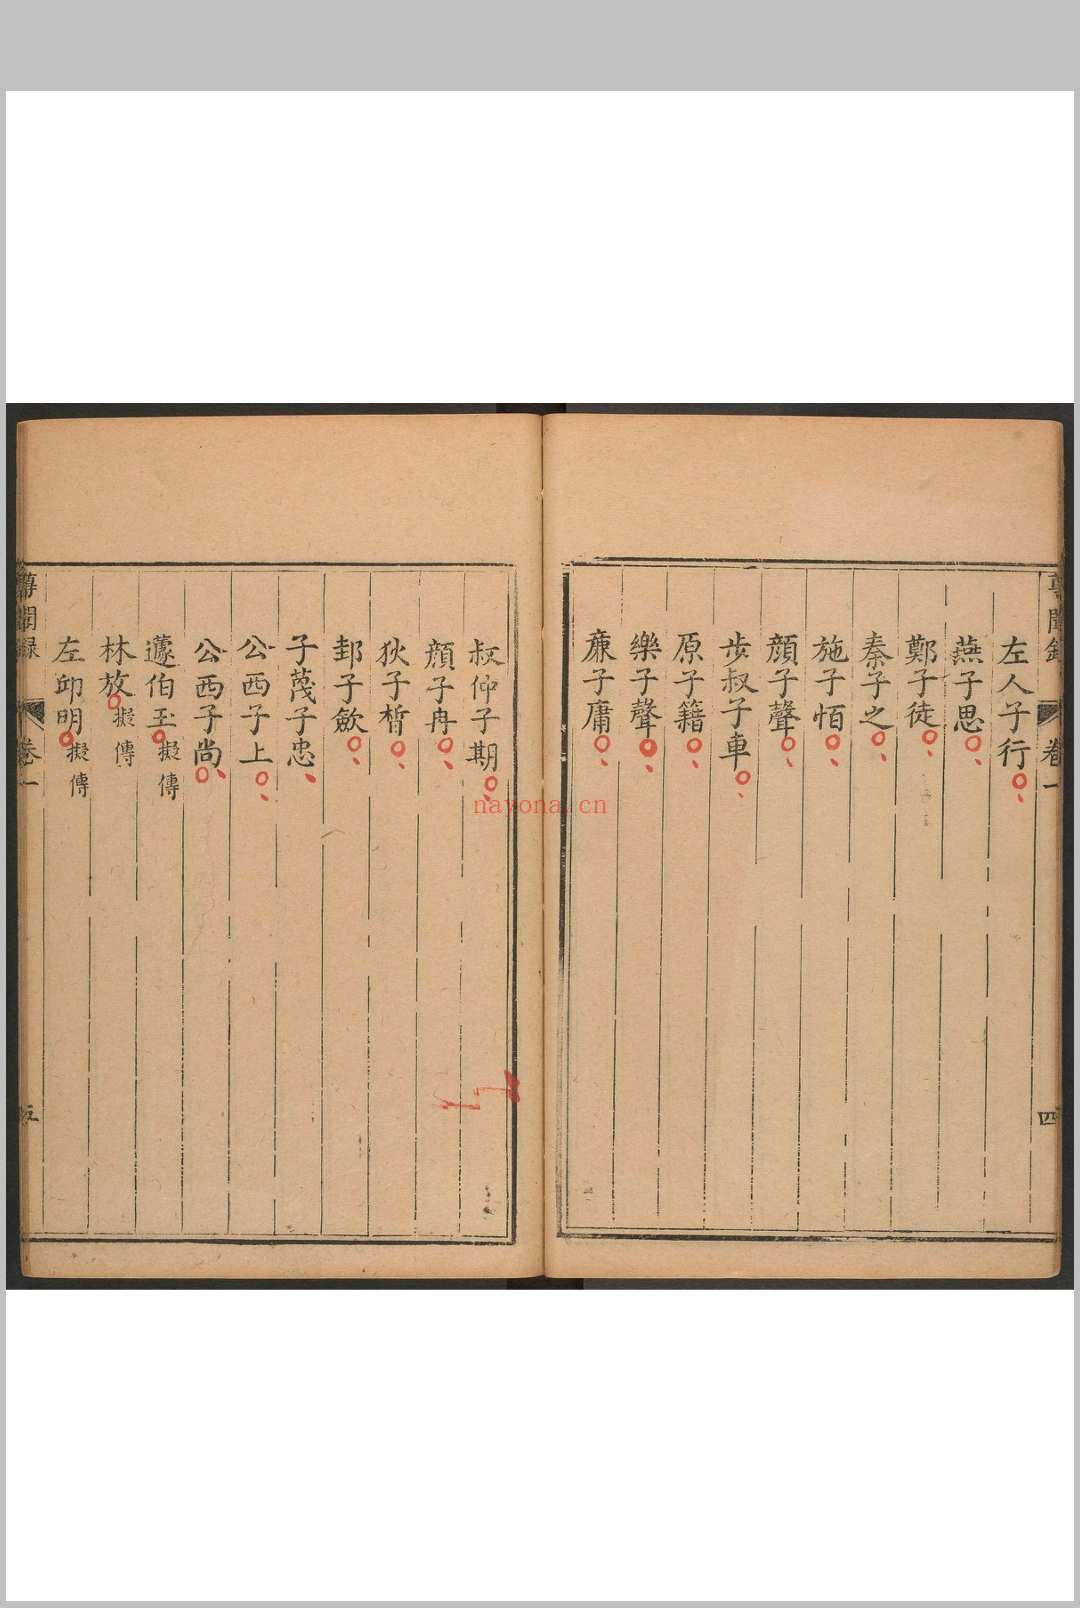 尊聞錄
卷一
四
左人子行
燕子思
鄭子徒
秦子之
施子恒
顏子聲
步叔子車
原子籍
樂子聲
廉子庸
叔仲子期
顏子冉
狄子皙
邽子歛
子蔑子忠
公西子上
公西子尚
蘧伯玉擬傳
林放擬傳
左邱明擬傳
尊聞錄
卷一
五
nayona.cn